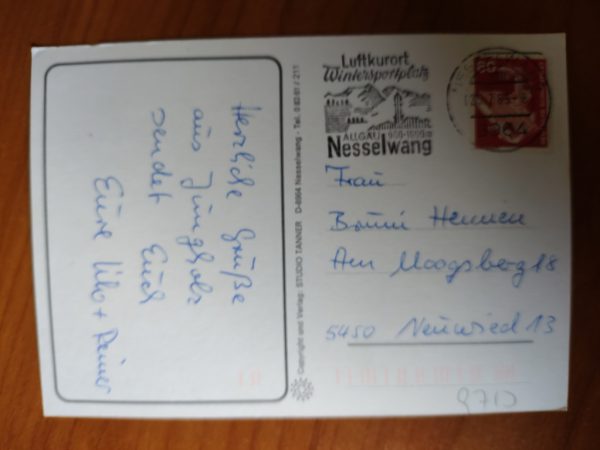 Herzliche Grüße
aus Jungholz
sendet Euch
Eure Udo + Reiner
Gestaltung und Verlag: STUDIO TANNER D-8964 Nesselwang - Tel. 0 83 61 / 211
Luftkurort
Wintersportplatz
ALLGÄU 900-1600m
Nesselwang
80
8964
Frau
Bruni Hennen
Am Moogsberg 18
5450 Neuwied 13